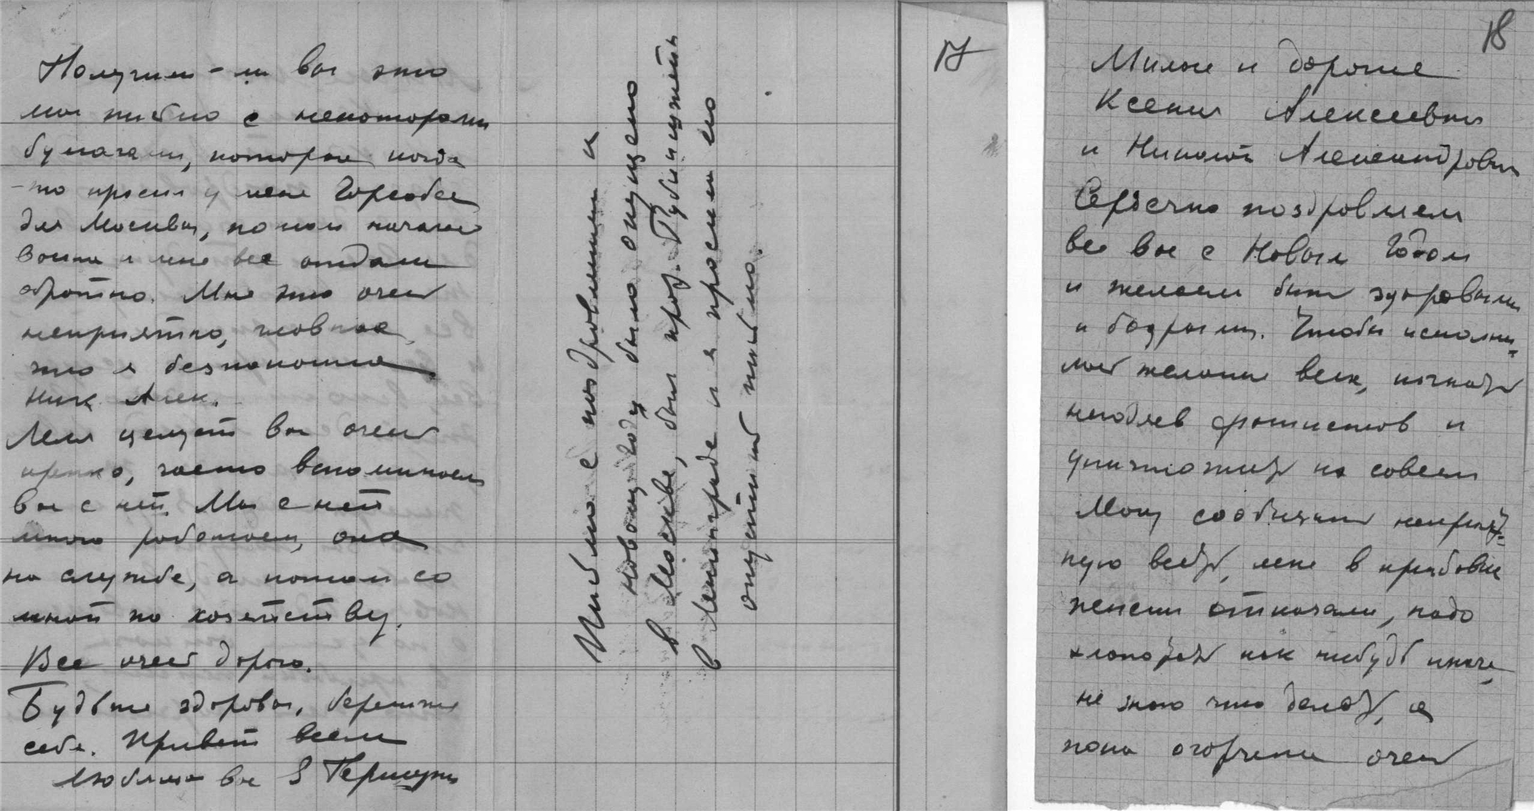 Получили-ли вы это
мое письмо с некоторыми
бумагами, которые когда
-то просил у меня
для Москвы, потом началась
война и мне все отдали
обратно. Мне это очень
неприятно, главное,
что я беспокоила
Ник. Алек.
Леля целует вас очень
крепко, часто вспоминаем
вас с ней. Мы с ней
много работаем, она
на службе, а потом со
мной по хозяйству.
Все очень дорого.
Будьте здоровы, берегите
себя. Привет всем
Любящая вас
Письмо с поздравлением и
новому году было опущено
в Москве, был проф.
в Ленинграде и я просила его
опустить письмо.
17
18
Милые и дорогие
Ксения Алексеевна
и Николай Александрович
Сердечно поздравляем
все вас с Новым Годом
и желаем быть здоровыми
и бодрыми. Чтобы исполни-
лось желание всех, изгнать
негодяев фашистов и
уничтожить их совсем
Могу сообщить неприят-
ную весть, мне в прибавке
пенсии отказали, надо
хлопотать как нибудь иначе,
не знаю что делать, а
пока огорчена очень